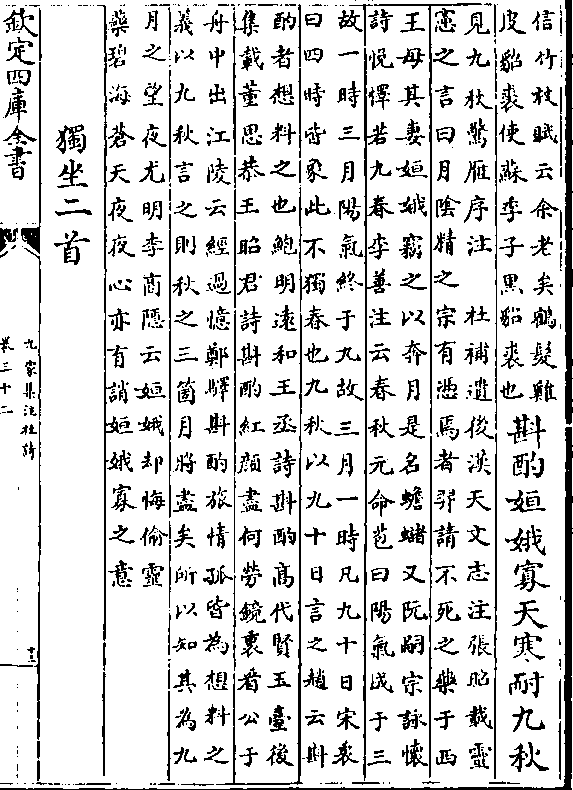 信竹杖賦云余老矣鶴髮雞
皮貂裘使蘇季子黒貂裘也
斟酌姮娥寡天寒耐九秋
見九秋驚雁序注　杜補遺後漢天文志注張昭載靈
憲之言曰月陰精之宗有憑焉者羿請不死之藥于西
王母其妻姮娥竊之以奔月是名蟾蠩又阮嗣宗詠懷
詩悦懌若九春李善注云春秋元命苞曰陽氣成于三
故一時三月陽氣終于九故三月一時凡九十日宋衷
曰四時皆象此不獨春也九秋以九十日言之趙云斟
酌者想料之也鮑明逺和王丞詩斟酌高代賢玉臺後
集載董思恭王昭君詩斟酌紅顔盡何勞鏡裏看公于
舟中出江陵云經過憶鄭驛斟酌旅情孤皆為想料之
義以九秋言之則秋之三箇月將盡矣所以知其為九
月之望夜尤明李商隱云姮娥却悔偷靈
藥碧海蒼天夜夜心亦有誚姮娥寡之意
獨坐二首
欽定四庫全書
九家集注杜詩
卷三十二
十三